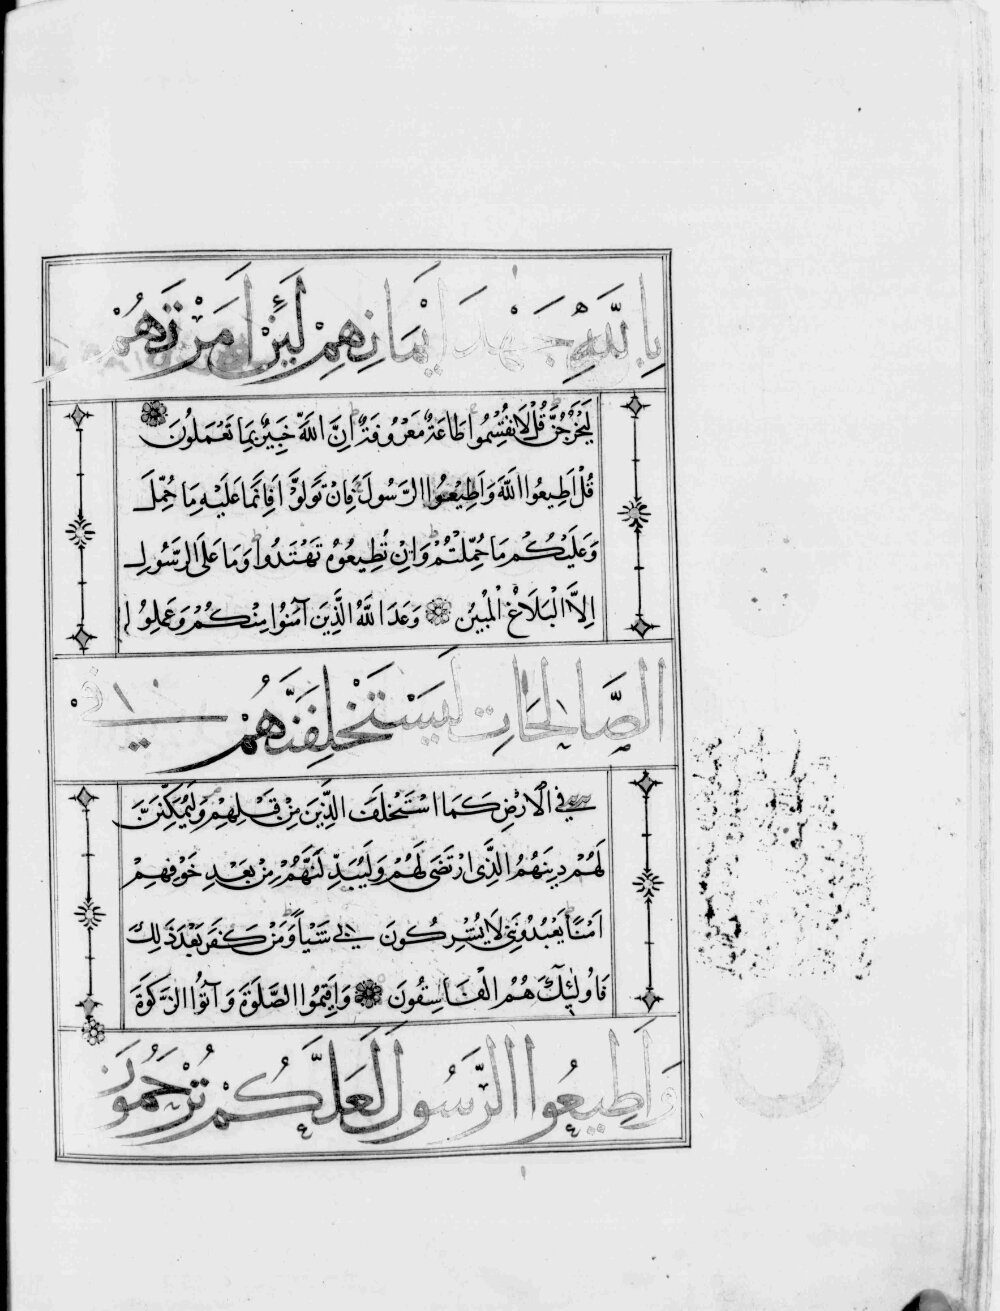 بِاللَّهِ جَهْدَ اَيْمَانِهِمْ لَئِنْ اَمَرْتَهُمْ
لَيَخْرُجُنَّ قُلْ لَا تُقْسِمُوا طَاعَةٌ مَعْرُوفَةٌ اِنَّ اللَّهَ خَبِيرٌ بِمَا تَعْمَلُونَ
قُلْ اَطِيعُوا اللَّهَ وَاَطِيعُوا الرَّسُولَ فَاِنْ تَوَلَّوْا فَاِنَّمَا عَلَيْهِ مَا حُمِّلَ
وَعَلَيْكُمْ مَا حُمِّلْتُمْ وَاِنْ تُطِيعُوهُ تَهْتَدُوا وَمَا عَلَى الرَّسُولِ
اِلَّا الْبَلَاغُ الْمُبِينُ وَعَدَ اللَّهُ الَّذِينَ آمَنُوا مِنْكُمْ وَعَمِلُوا
الصَّالِحَاتِ لَيَسْتَخْلِفَنَّهُمْ فِي
فِي الْاَرْضِ كَمَا اسْتَخْلَفَ الَّذِينَ مِنْ قَبْلِهِمْ وَلَيُمَكِّنَنَّ
لَهُمْ دِينَهُمُ الَّذِي ارْتَضَى لَهُمْ وَلَيُبَدِّلَنَّهُمْ مِنْ بَعْدِ خَوْفِهِمْ
اَمْنًا يَعْبُدُونَنِي لَا يُشْرِكُونَ بِي شَيْئًا وَمَنْ كَفَرَ بَعْدَ ذَلِكَ
فَاُولَئِكَ هُمُ الْفَاسِقُونَ وَاَقِيمُوا الصَّلٰوةَ وَآتُوا الزَّكٰوةَ
وَاَطِيعُوا الرَّسُولَ لَعَلَّكُمْ تُرْحَمُونَ